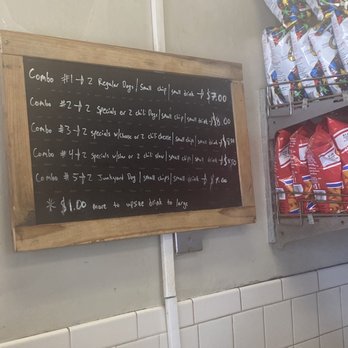 Combo #1 → 2 Regular Dogs / small chip / small drink → $7.00
Combo #2 → 2 specials or 2 chili Dogs / small chip / small drink → $8.00
Combo #3 → 2 specials w/cheese or 2 chili cheese / small chip / small drink →
Combo #4 → 2 specials w/slaw or 2 chili slaw / small chip / small drink →
Combo #5 → 2 Junkyard Dog / small chips / small drink →
* $1.00 more to upsize drink to large